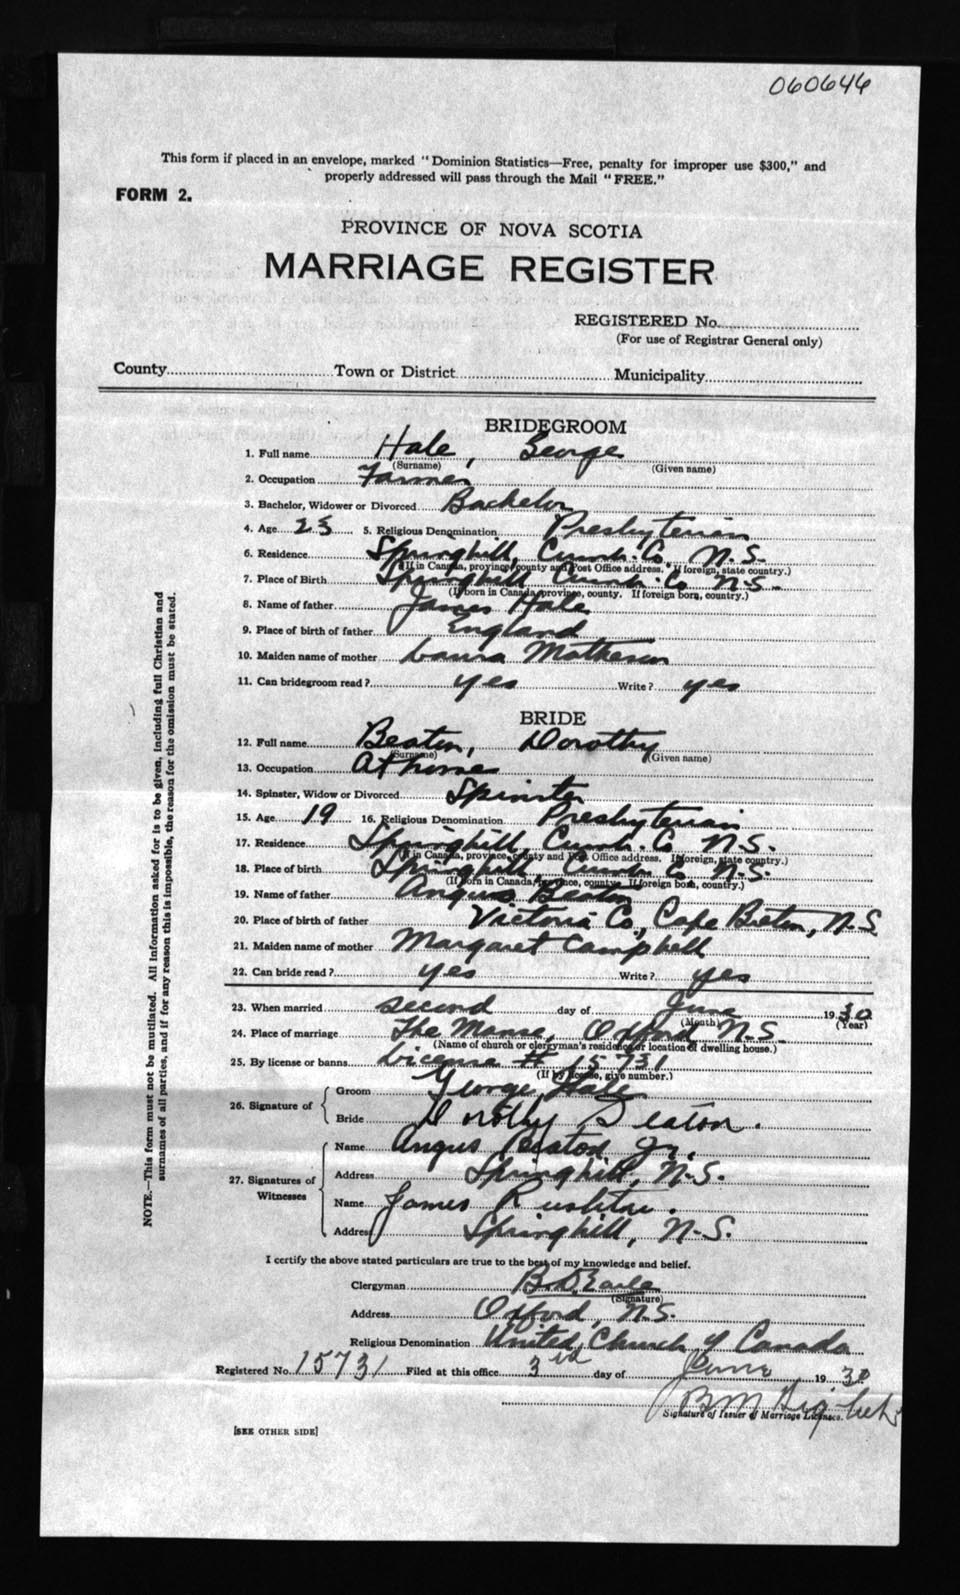 060646
This form if placed in an envelope, marked "Dominion Statistics—Free, penalty for improper use $300," and
properly addressed will pass through the Mail "FREE."
FORM 2.
PROVINCE OF NOVA SCOTIA
MARRIAGE REGISTER
REGISTERED No.
(For use of Registrar General only)
County Town or District Municipality
BRIDEGROOM
1. Full name Hale, George
(Surname) (Given name)
2. Occupation Farmer
3. Bachelor, Widower or Divorced Bachelor
4. Age 23 5. Religious Denomination Presbyterian
6. Residence Springhill, Cumb. Co. N.S.
(If in Canada, province, county and Post Office address. If foreign, state country.)
7. Place of Birth Springhill Cumb. Co N.S.
(If born in Canada, province, county. If foreign born, country.)
8. Name of father James Hale
9. Place of birth of father England
10. Maiden name of mother Laura Matheson
11. Can bridegroom read? yes Write? yes
BRIDE
12. Full name Beaton, Dorothy
(Surname) (Given name)
13. Occupation At home
14. Spinster, Widow or Divorced Spinster
15. Age 19 16. Religious Denomination Presbyterian
17. Residence Springhill, Cumb. Co N.S.
(If in Canada, province, county and Post Office address. If foreign, state country.)
18. Place of birth Springhill Cumb Co N.S.
(If born in Canada, province, county. If foreign born, country.)
19. Name of father Angus Beaton
20. Place of birth of father Victoria Co., Cape Breton, N.S.
21. Maiden name of mother Margaret Campbell
22. Can bride read? yes Write? yes
23. When married second day of June 1930
(Month) (Year)
24. Place of marriage The Manse, Oxford, N.S.
(Name of church or clergyman's residence or location of dwelling house.)
25. By license or banns License # 15731
(If by license, give number.)
26. Signature of
Groom George Hale
Bride Dorothy Beaton.
27. Signatures of Witnesses
Name Angus Beaton Jr.
Address Springhill, N.S.
Name James Rushton.
Address Springhill, N.S.
I certify the above stated particulars are true to the best of my knowledge and belief.
Clergyman B.D. Earle
(Signature)
Address Oxford, N.S.
Religious Denomination United Church of Canada
Registered No. 15731 Filed at this office 3rd day of June 1930
Signature of Issuer of Marriage Licenses.
[SEE OTHER SIDE]
NOTE.—This form must not be mutilated. All information asked for is to be given, including full Christian and
surnames of all parties, and if for any reason this is impossible, the reason for the omission must be stated.